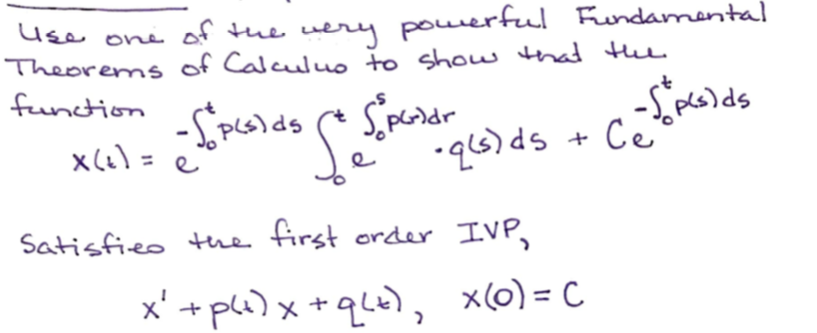 Use one of the very powerful Fundamental
Theorems of Calculus to show that the
function
x(t) = e^{-∫_0^t p(s)ds} ∫_0^t e^{∫_0^s p(r)dr} · q(s) ds + Ce^{-∫_0^t p(s)ds}
Satisfies the first order IVP,
x' + p(t) x + q(t), x(0) = C